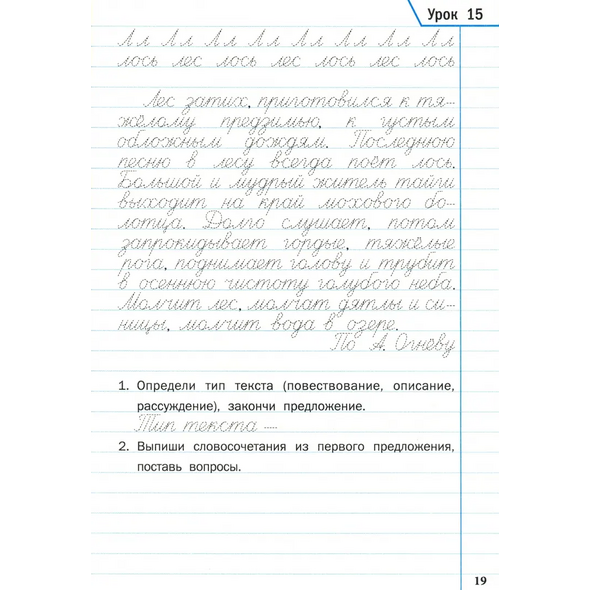 Урок 15
Лл Лл Лл Лл Лл Лл Лл Лл
лось лес лось лес лось лес лось
Лес затих, приготовился к тя-
жёлому предзимью, к густым
обложным дождям. Последнюю
песню в лесу всегда поёт лось.
Большой и мудрый житель тайги
выходит на край мохового бо-
лотца. Долго слушает, потом
запрокидывает гордые, тяжёлые
рога, поднимает голову и трубит
в осеннюю чистоту голубого неба.
Молчит лес, молчат дятлы и си-
ницы, молчит вода в озере.
По А. Огневу
1. Определи тип текста (повествование, описание,
рассуждение), закончи предложение.
Тип текста —
2. Выпиши словосочетания из первого предложения,
поставь вопросы.
19